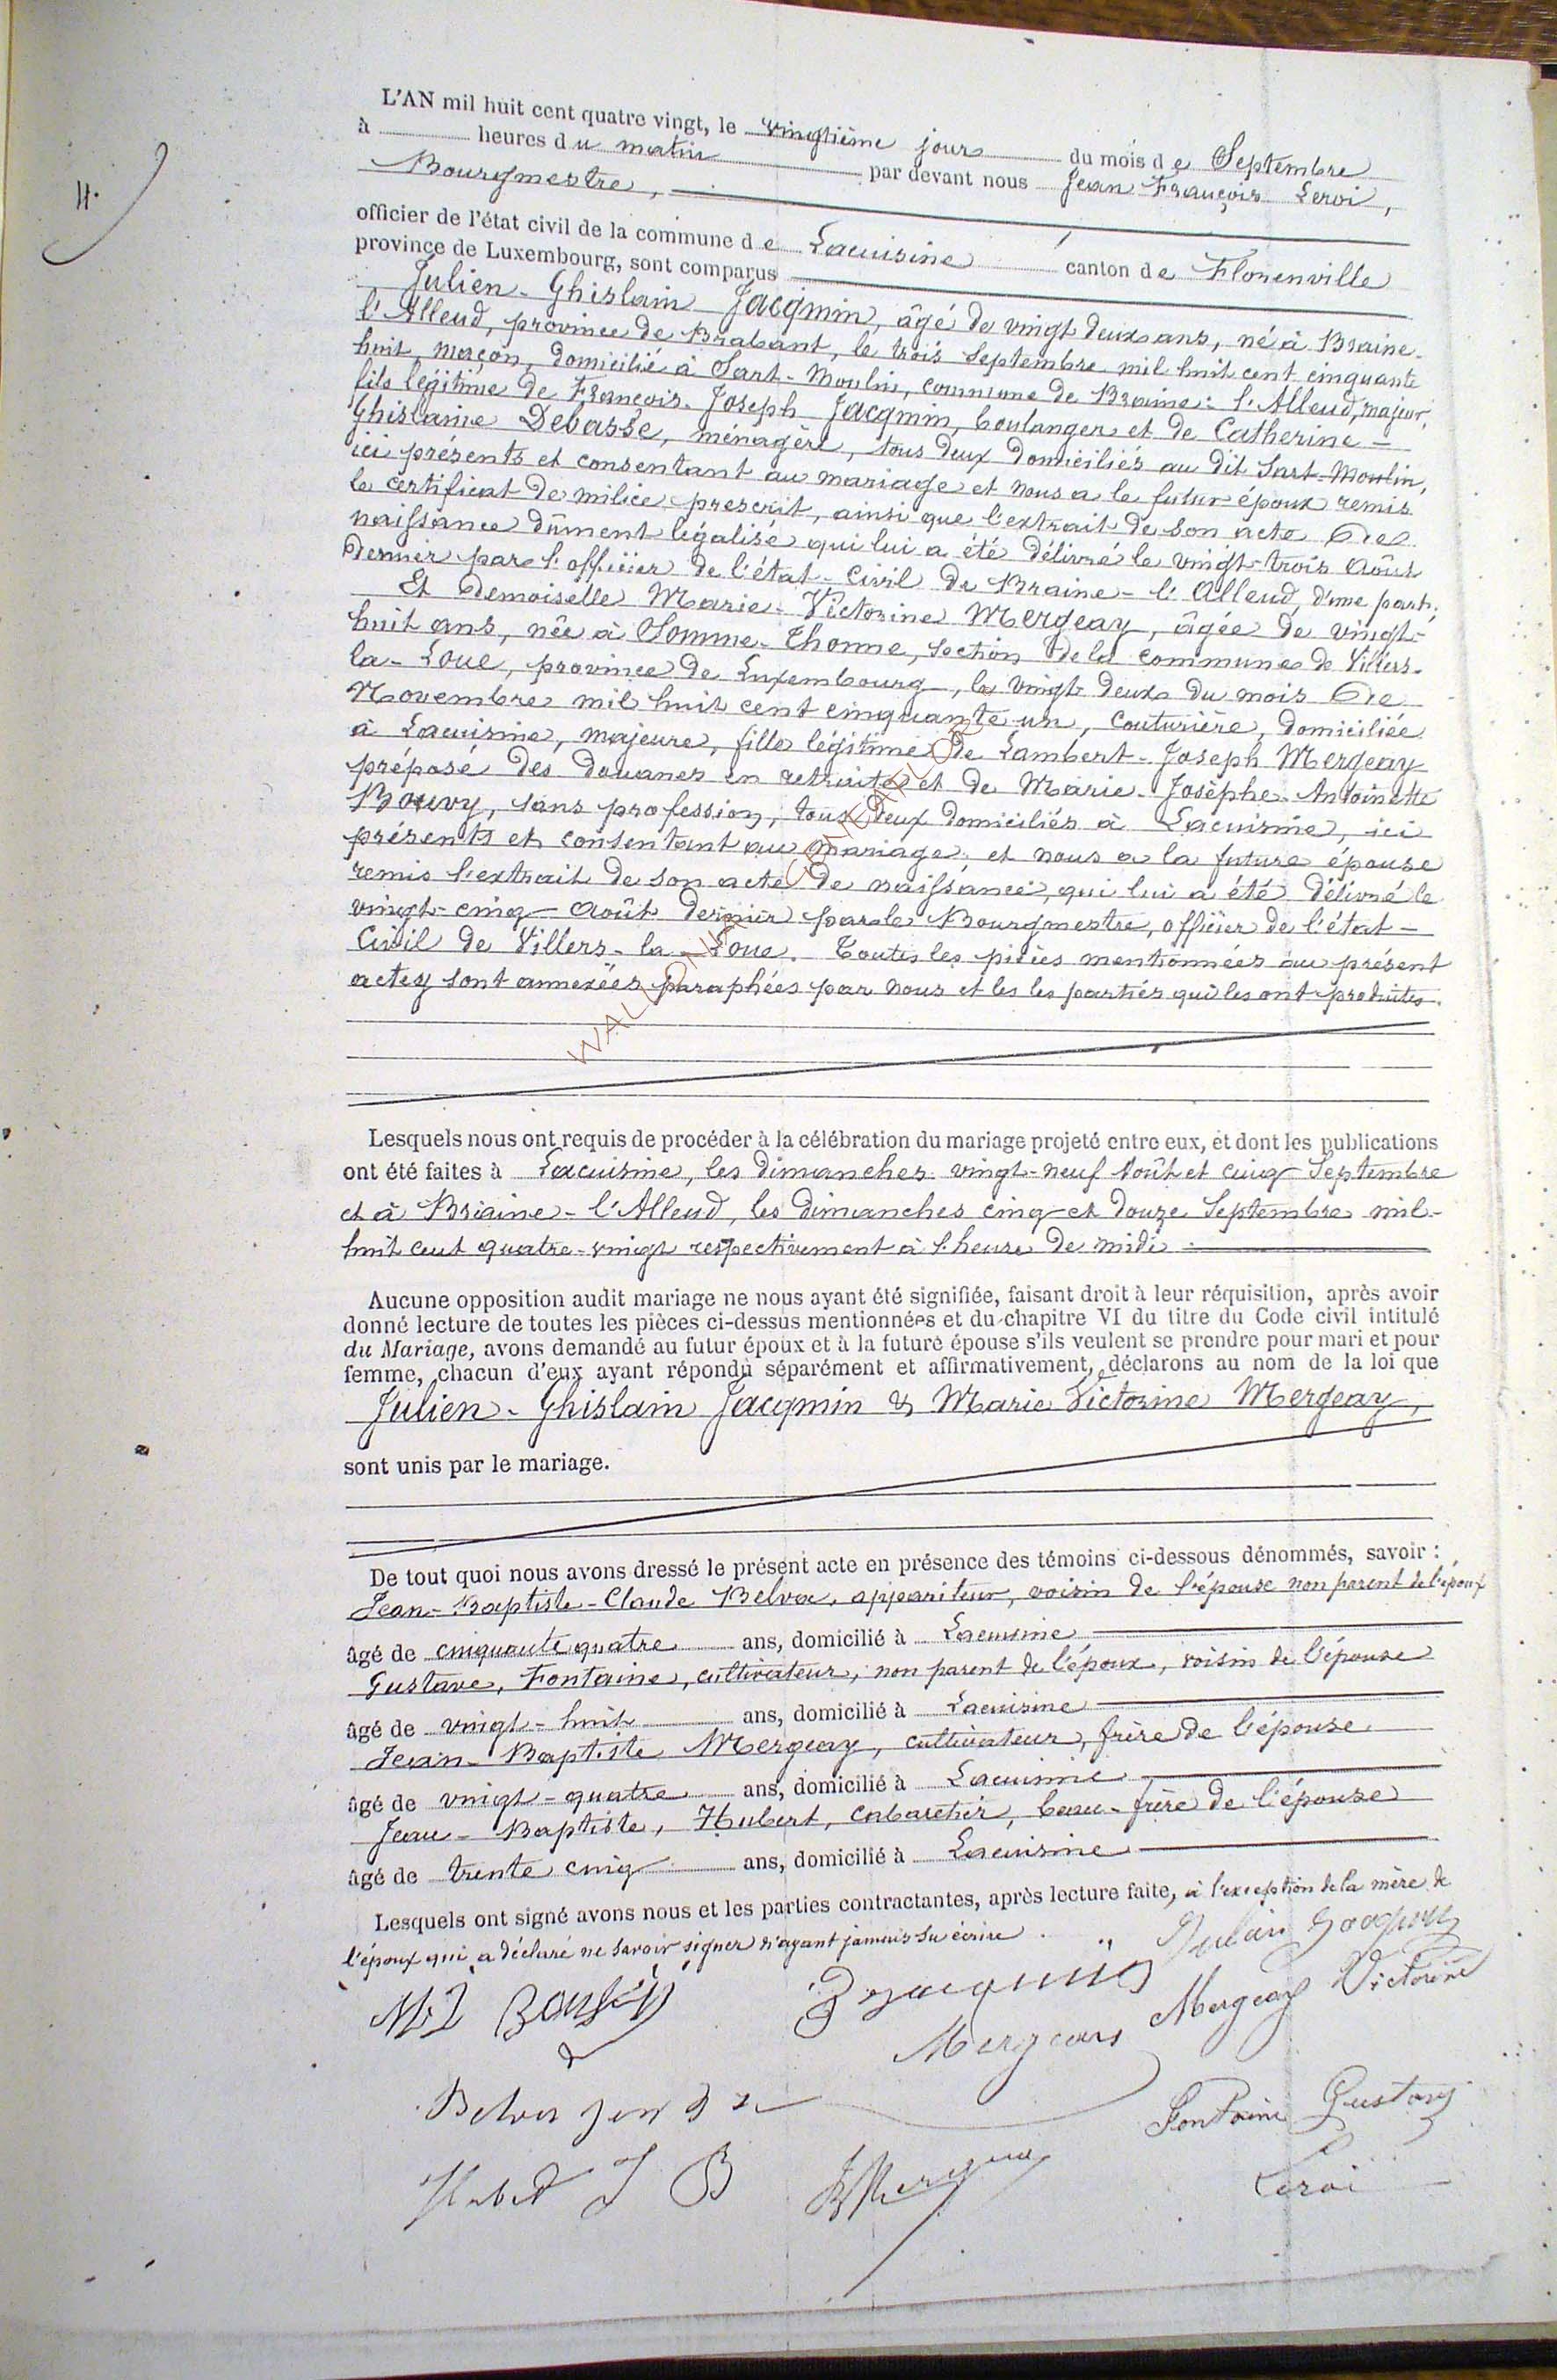 L'AN mil huit cent quatre vingt, le vingtième jour du mois de Septembre
à heures du matin par devant nous Jean François Leroi,
Bourgmestre,
officier de l'état civil de la commune de Lacuisine canton de Florenville
province de Luxembourg, sont comparus
Julien-Ghislain Jacqmin, âgé de vingt deux ans, né à Braine-
l'Alleud, province de Brabant, le trois Septembre mil huit cent cinquante
huit, maçon, domicilié à Sart-Moulin, commune de Braine-l'Alleud, majeur,
fils légitime de François-Joseph Jacqmin, boulanger et de Catherine-
Ghislaine Debasse, ménagère, tous deux domiciliés au dit Sart-Moulin,
ici présents et consentant au mariage et nous a le futur époux remis
le certificat de milice prescrit, ainsi que l'extrait de son acte de
naissance dûment légalisé qui lui a été délivré le vingt-trois Août
dernier par l'officier de l'état-civil de Braine-l'Alleud, d'une part;
Et Demoiselle Marie-Victorine Mergeay, âgée de vingt-
huit ans, née à Somme-Thonne, section de la commune de Villers-
la-Loue, province de Luxembourg, le vingt deux du mois de
Novembre mil huit cent cinquante un, couturière, domiciliée
à Lacuisine, majeure, fille légitime de Lambert-Joseph Mergeay
préposé des douanes en retraite et de Marie-Josèphe-Antoinette
Bouvy, sans profession, tous deux domiciliés à Lacuisine, ici
présents et consentant au mariage; et nous a la future épouse
remis l'extrait de son acte de naissance, qui lui a été délivré le
vingt-cinq Août dernier par le Bourgmestre, officier de l'état-
Civil de Villers-la-Loue. Toutes les pièces mentionnées au présent
acte, sont annexées paraphées par nous et les les parties qui les ont produites.
WALLONIA GENEALOGY
Lesquels nous ont requis de procéder à la célébration du mariage projeté entre eux, et dont les publications
ont été faites à Lacuisine, les dimanches vingt-neuf Août et cinq Septembre
et à Braine-l'Alleud, les dimanches cinq et douze Septembre mil-
huit cent quatre-vingt respectivement à l'heure de midi
Aucune opposition audit mariage ne nous ayant été signifiée, faisant droit à leur réquisition, après avoir
donné lecture de toutes les pièces ci-dessus mentionnées et du chapitre VI du titre du Code civil intitulé
du Mariage, avons demandé au futur époux et à la future épouse s'ils veulent se prendre pour mari et pour
femme, chacun d'eux ayant répondu séparément et affirmativement, déclarons au nom de la loi que
Julien-Ghislain Jacqmin & Marie Victorine Mergeay,
sont unis par le mariage.
De tout quoi nous avons dressé le présent acte en présence des témoins ci-dessous dénommés, savoir :
Jean-Baptiste-Claude Belva, appariteur, voisin de l'épouse non parent de l'époux
âgé de cinquante quatre ans, domicilié à Lacuisine
Gustave, Fontaine, cultivateur, non parent de l'époux, voisin de l'épouse
âgé de vingt-huit ans, domicilié à Lacuisine
Jean-Baptiste Mergeay, cultivateur, frère de l'épouse
âgé de vingt-quatre ans, domicilié à Lacuisine
Jean-Baptiste, Hubert, cabaretier, beau-frère de l'épouse
âgé de trente cinq ans, domicilié à Lacuisine
Lesquels ont signé avons nous et les parties contractantes, après lecture faite, à l'exception de la mère de
l'époux qui a déclaré ne savoir signer n'ayant jamais su écrire.
Julien Jacqmin
Jacqmin
Mergeay Victorine
Mergeay
Fontaine Gustave
Hubert J B
Leroi